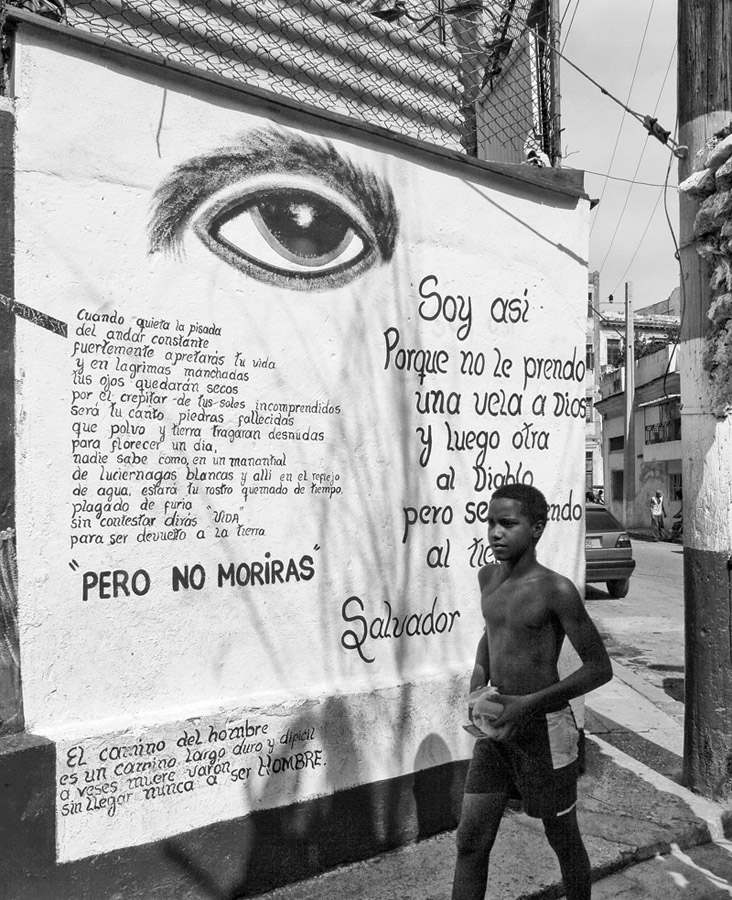 Cuando quieta la pisada
del andar constante
fuertemente apretarás tu vida
y en lagrimas manchadas
tus ojos quedarán secos
por el crepitar de tus soles incomprendidos
será tu canto piedras fallecidas
que polvo y tierra tragaran desnudas
para florecer un dia,
nadie sabe como, en un manantial
de luciernagas blancas y alli en el reflejo
de agua, estará tu rostro quemado de tiempo,
plagado de furia
sin contestar dirás "VIDA"
para ser devuelto a la tierra
"PERO NO MORIRAS"
Soy asi
Porque no le prendo
una vela a Dios
y luego otra
al Diablo
pero
al
Salvador
El camino del hombre
es un camino largo duro y dificil
a veses muere varon
sin llegar nunca a ser HOMBRE.